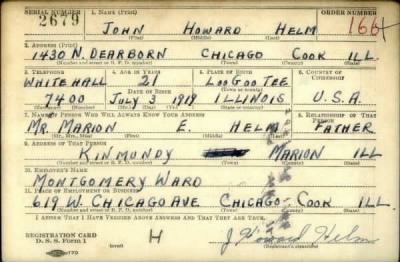 SERIAL NUMBER 1. NAME (Print) ORDER NUMBER
2679 JOHN HOWARD HELM 1664
(First) (Middle) (Last)
2. ADDRESS (Print)
1430 N. DEARBORN CHICAGO COOK ILL.
(Number and street or R. F. D. number) (Town) (County) (State)
3. TELEPHONE 4. AGE IN YEARS 5. PLACE OF BIRTH 6. COUNTRY OF CITIZENSHIP
WHITEHALL 21 LOOGOOTEE
DATE OF BIRTH (Town or county)
7400 JULY 3 1919 ILLINOIS U.S.A.
(Exchange) (Number) (Mo.) (Day) (Yr.) (State or country)
7. NAME OF PERSON WHO WILL ALWAYS KNOW YOUR ADDRESS 8. RELATIONSHIP OF THAT PERSON
MR. MARION E. HELM FATHER
(Mr., Mrs., Miss) (First) (Middle) (Last)
9. ADDRESS OF THAT PERSON
KINMUNDY MARION ILL
(Number and street or R. F. D. number) (Town) (County) (State)
10. EMPLOYER'S NAME
MONTGOMERY WARD
11. PLACE OF EMPLOYMENT OR BUSINESS
619 W. CHICAGO AVE CHICAGO COOK ILL.
(Number and street or R. F. D. number) (Town) (County) (State)
I AFFIRM THAT I HAVE VERIFIED ABOVE ANSWERS AND THAT THEY ARE TRUE.
REGISTRATION CARD
D. S. S. Form 1 H J. Howard Helm